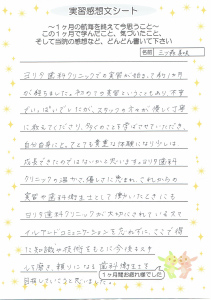 実習感想文シート
～1ヶ月の航海を終えて今思うこと～
この1ヶ月で学んだこと、気づいたこと、
そして当院の感想など、どんどん書いて下さい
名前
ヨリタ歯科クリニックでの実習が始まって約1ヶ月
が経ちました。初めての実習ということもあり、不安
でいっぱいでしたが、スタッフの方々が優しく丁寧
に教えてくださり、多くのことを学ばせていただき、
自分自身にとってとても貴重な体験になり少しは
成長できたのではないかと思います。ヨリタ歯科
クリニックの温かさ、優しさに恵まれ、これからの
実習や歯科衛生士として働いたときにも
ヨリタ歯科クリニックが大切にされているスマ
イルアンドコミュニケーションを忘れずに、ここで得
た知識や技術をもとに今後も
し磨き、頼りになる歯科衛生士を
目指していこうと思いました。
1ヶ月間お疲れ様でした